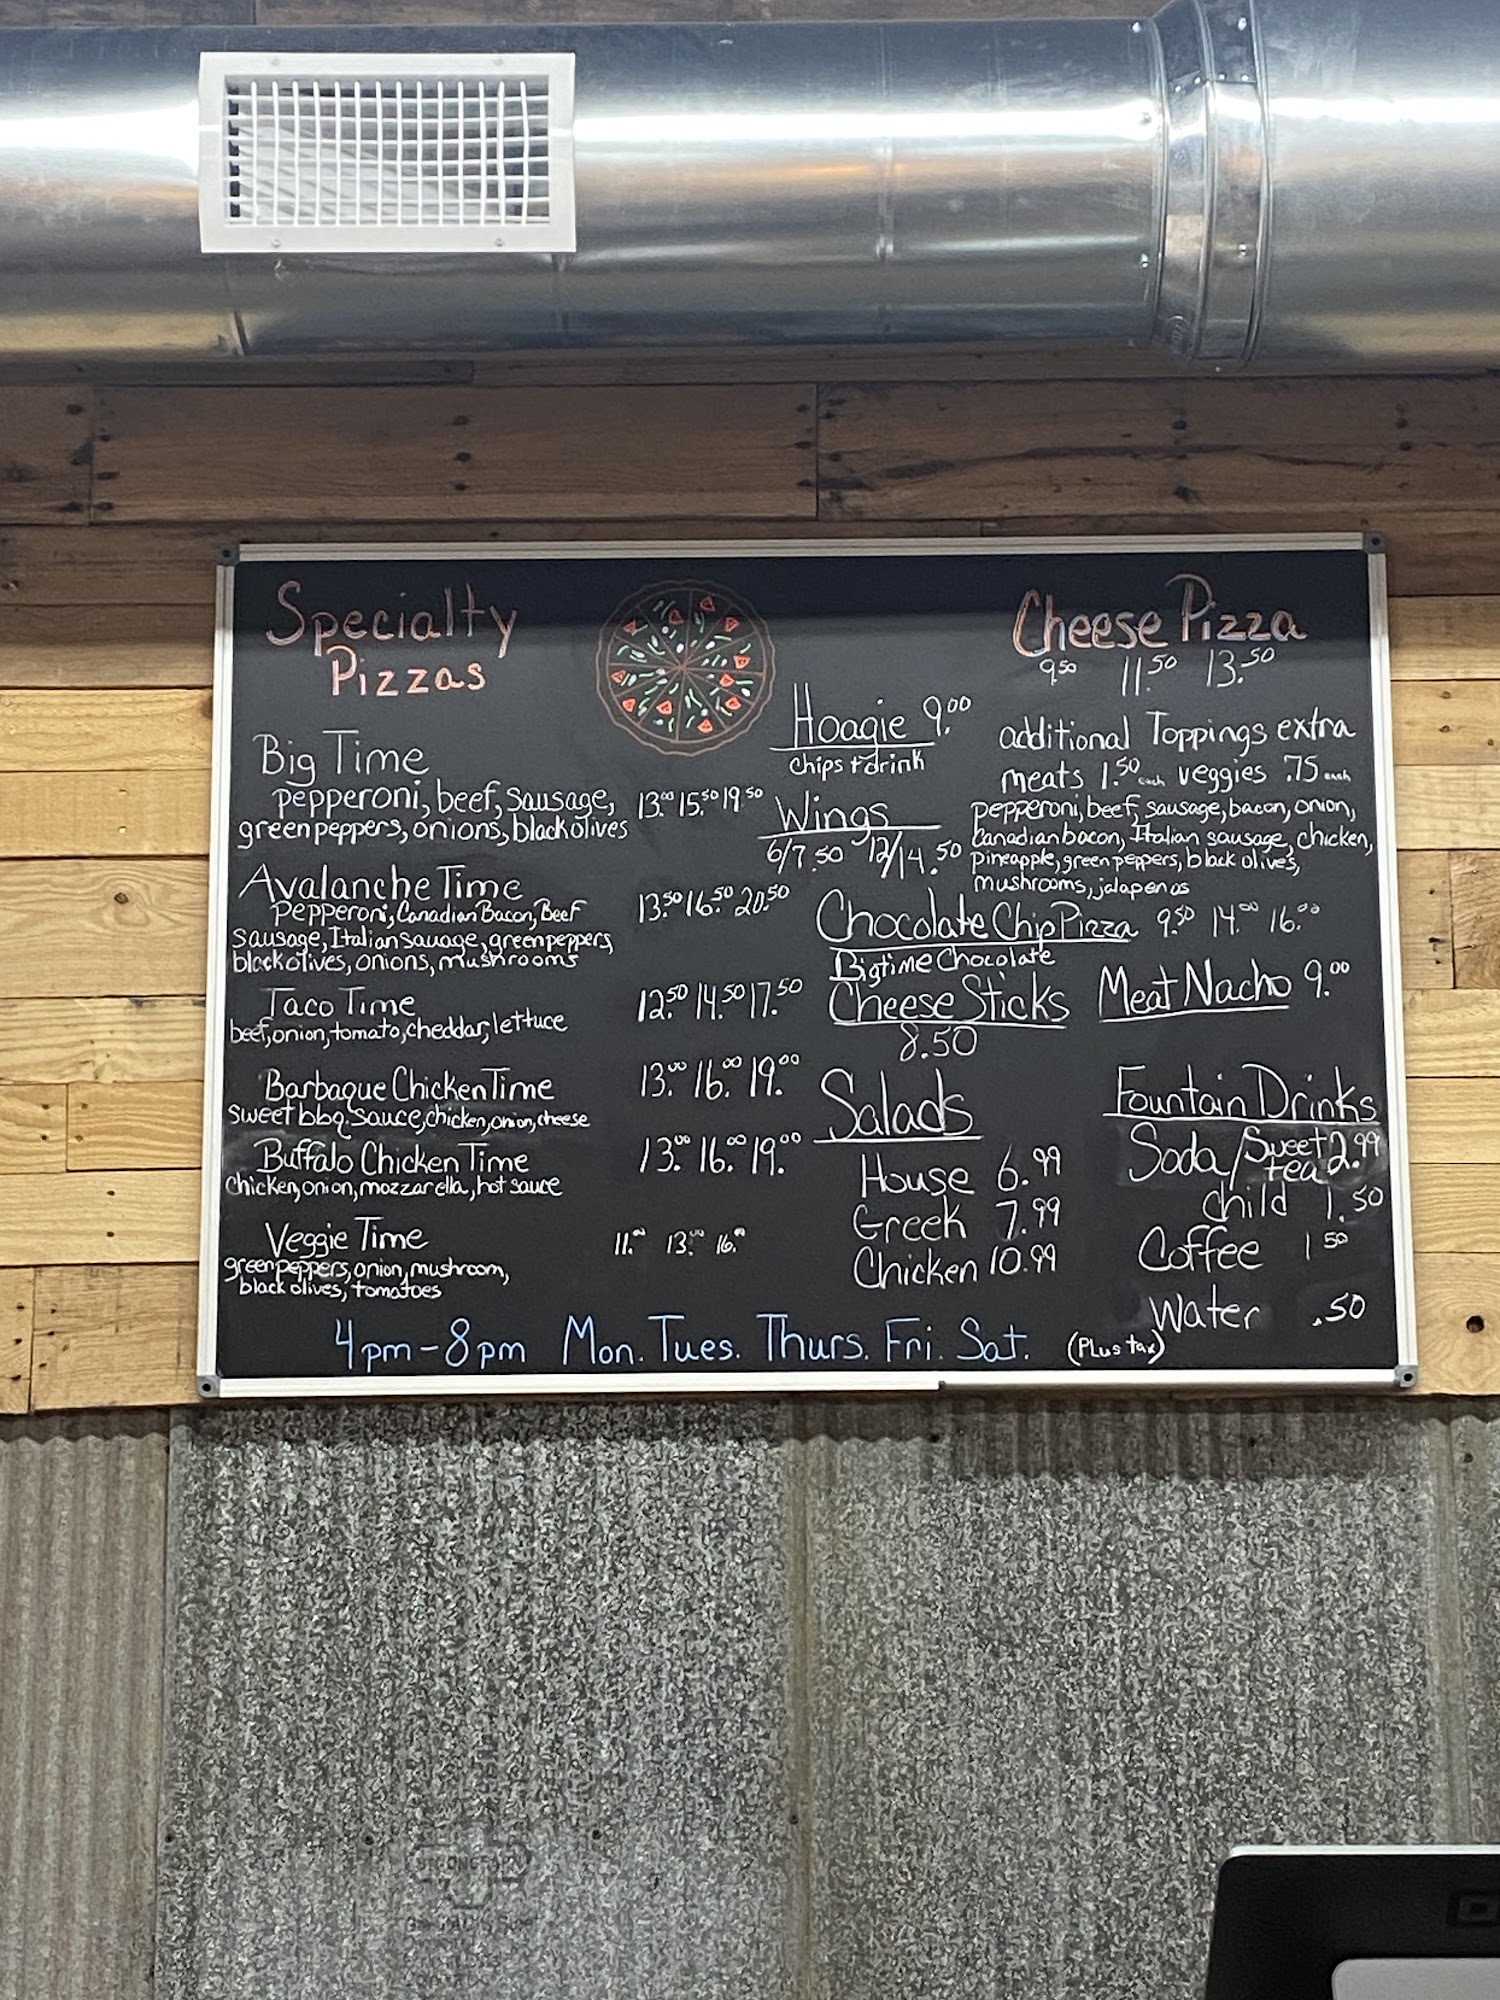 Specialty
Pizzas
Big Time
pepperoni, beef, sausage,
green peppers, onions, black olives
13.00 15.50 19.50
Avalanche Time
Pepperoni, Canadian Bacon, Beef
sausage, Italian sauage, green peppers,
black olives, onions, mushrooms
13.50 16.50 20.50
Taco Time
beef, onion, tomato, cheddar, lettuce
12.50 14.50 17.50
Barbaque Chicken Time
sweet bbq. sauce, chicken, onion, cheese
13.00 16.00 19.00
Buffalo Chicken Time
chicken, onion, mozzarella, hot sauce
13.00 16.00 19.00
Veggie Time
green peppers, onion, mushroom,
black olives, tomatoes
11.00 13.00 16.00
Hoagie 9.00
chips + drink
Wings
6/7.50 12/14.50
Cheese Pizza
9.50 11.50 13.50
additional Toppings extra
meats 1.50 each veggies .75 each
pepperoni, beef, sausage, bacon, onion,
Canadian bacon, Italian sausage, chicken,
pineapple, green peppers, black olives,
mushrooms, jalapenos
Chocolate Chip Pizza 9.50 14.00 16.00
Bigtime Chocolate
Cheese Sticks
8.50
Meat Nacho 9.00
Salads
House 6.99
Greek 7.99
Chicken 10.99
Fountain Drinks
Soda/Sweet tea 2.99
child 1.50
Coffee 1.50
Water .50
4pm-8pm Mon. Tues. Thurs. Fri. Sat. (Plus tax)